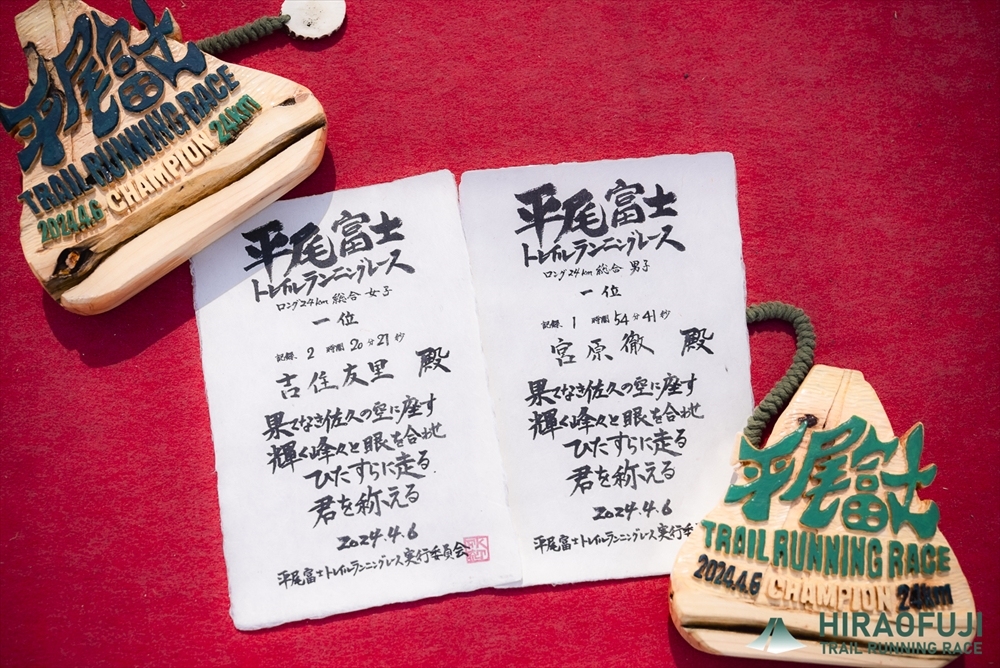 平尾富士
TRAIL RUNNING RACE
2024.4.6 CHAMPION 24km
平尾富士
トレイルランニングレース
ロング24km 総合 女子
一位
記録、2時間20分27秒
吉住友里 殿
果てなき佐久の空に座す
輝く峰々と眼を合わせ
ひたすらに走る
君を称える
2024.4.6
平尾富士トレイルランニングレース実行委員会
平尾富士
トレイルランニングレース
ロング24km 総合 男子
一位
記録、1時間54分41秒
宮原徹 殿
果てなき佐久の空に座す
輝く峰々と眼を合わせ
ひたすらに走る
君を称える
2024.4.6
平尾富士トレイルランニングレース実行
平尾富士
TRAIL RUNNING RACE
2024.4.6 CHAMPION 24km
HIRAOFUJI
TRAIL RUNNING RACE